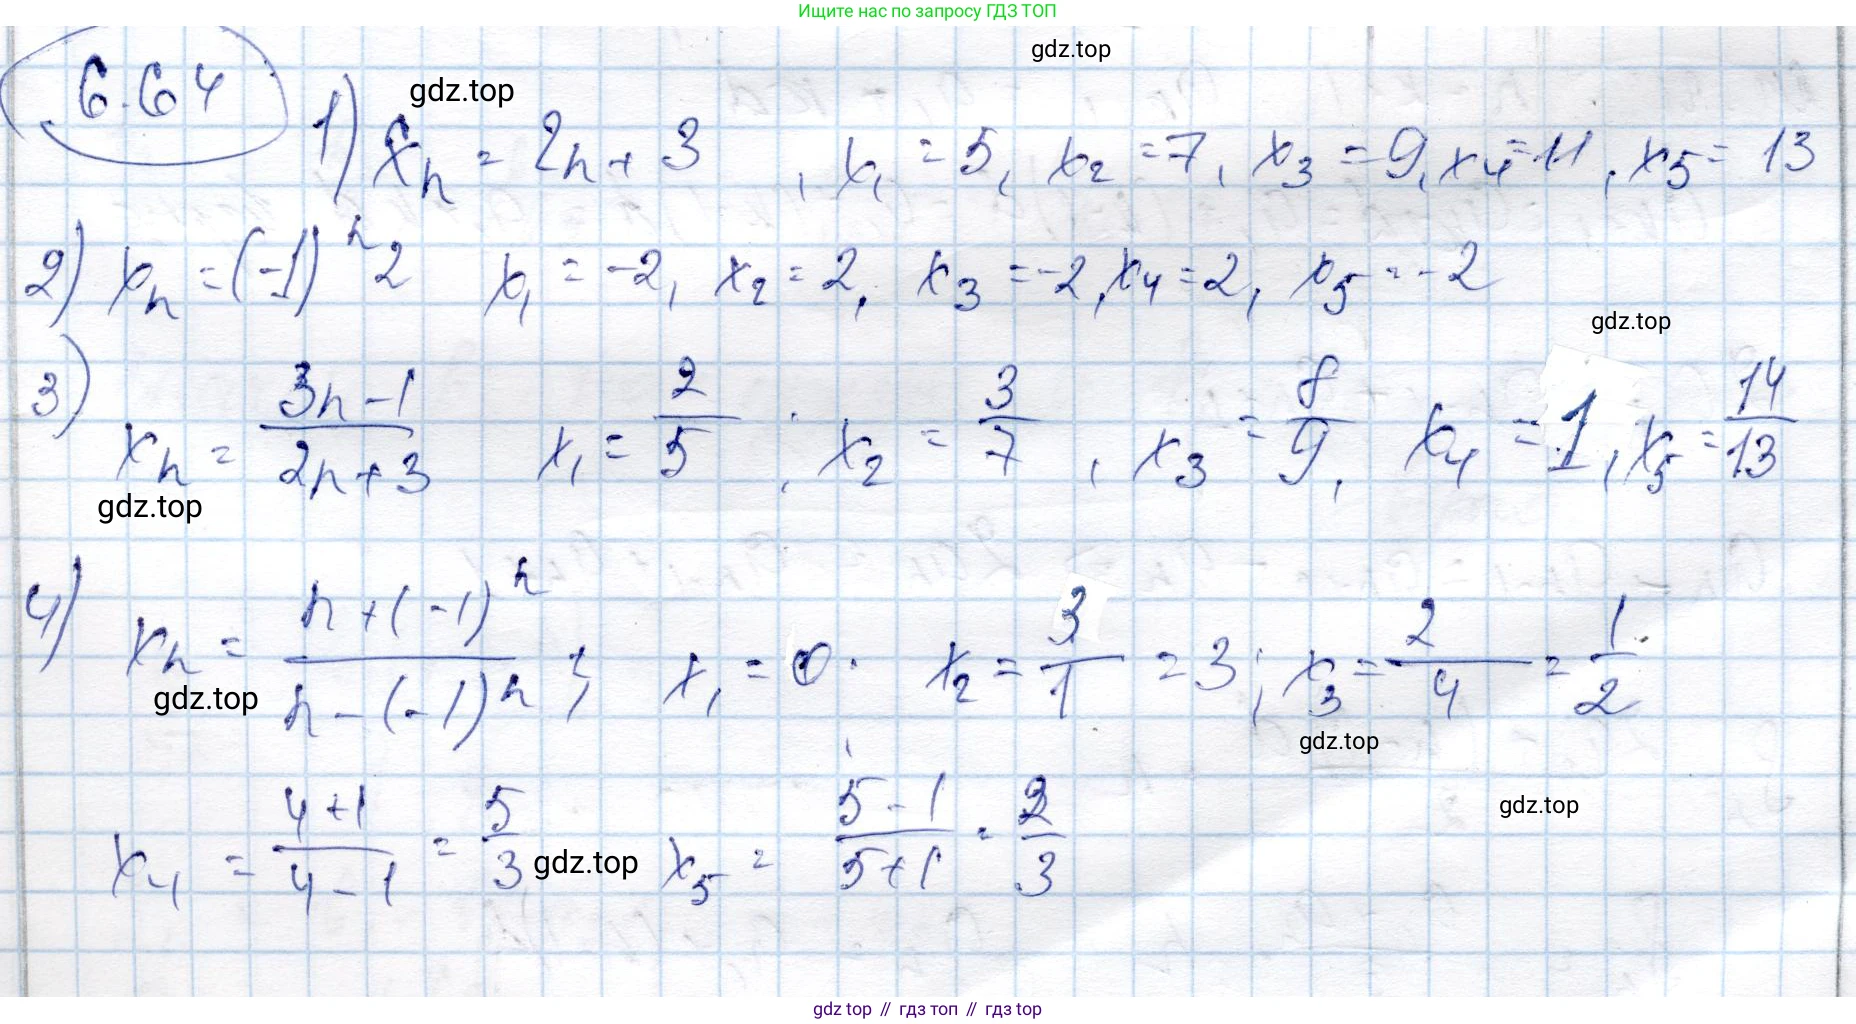 Ищите нас по запросу ГДЗ ТОП
gdz.top
6.64
gdz.top
1) xₙ = 2n + 3, x₁ = 5, x₂ = 7, x₃ = 9, x₄ = 11, x₅ = 13
2) xₙ = (-1)ⁿ 2 x₁ = -2, x₂ = 2, x₃ = -2, x₄ = 2, x₅ = -2
gdz.top
3) xₙ = (3n-1)/(2n+3) x₁ = 2/5; x₂ = 3/7, x₃ = 8/9, x₄ = 1, x₅ = 14/13
gdz.top
4) xₙ = (n+(-1)ⁿ)/(n-(-1)ⁿ); x₁ = 0. x₂ = 3/1 = 3; x₃ = 2/4 = 1/2
gdz.top
gdz.top
gdz.top
x₄ = (4+1)/(4-1) = 5/3 x₅ = (5-1)/(5+1) = 2/3
gdz.top
gdz top // гдз топ // гдз top